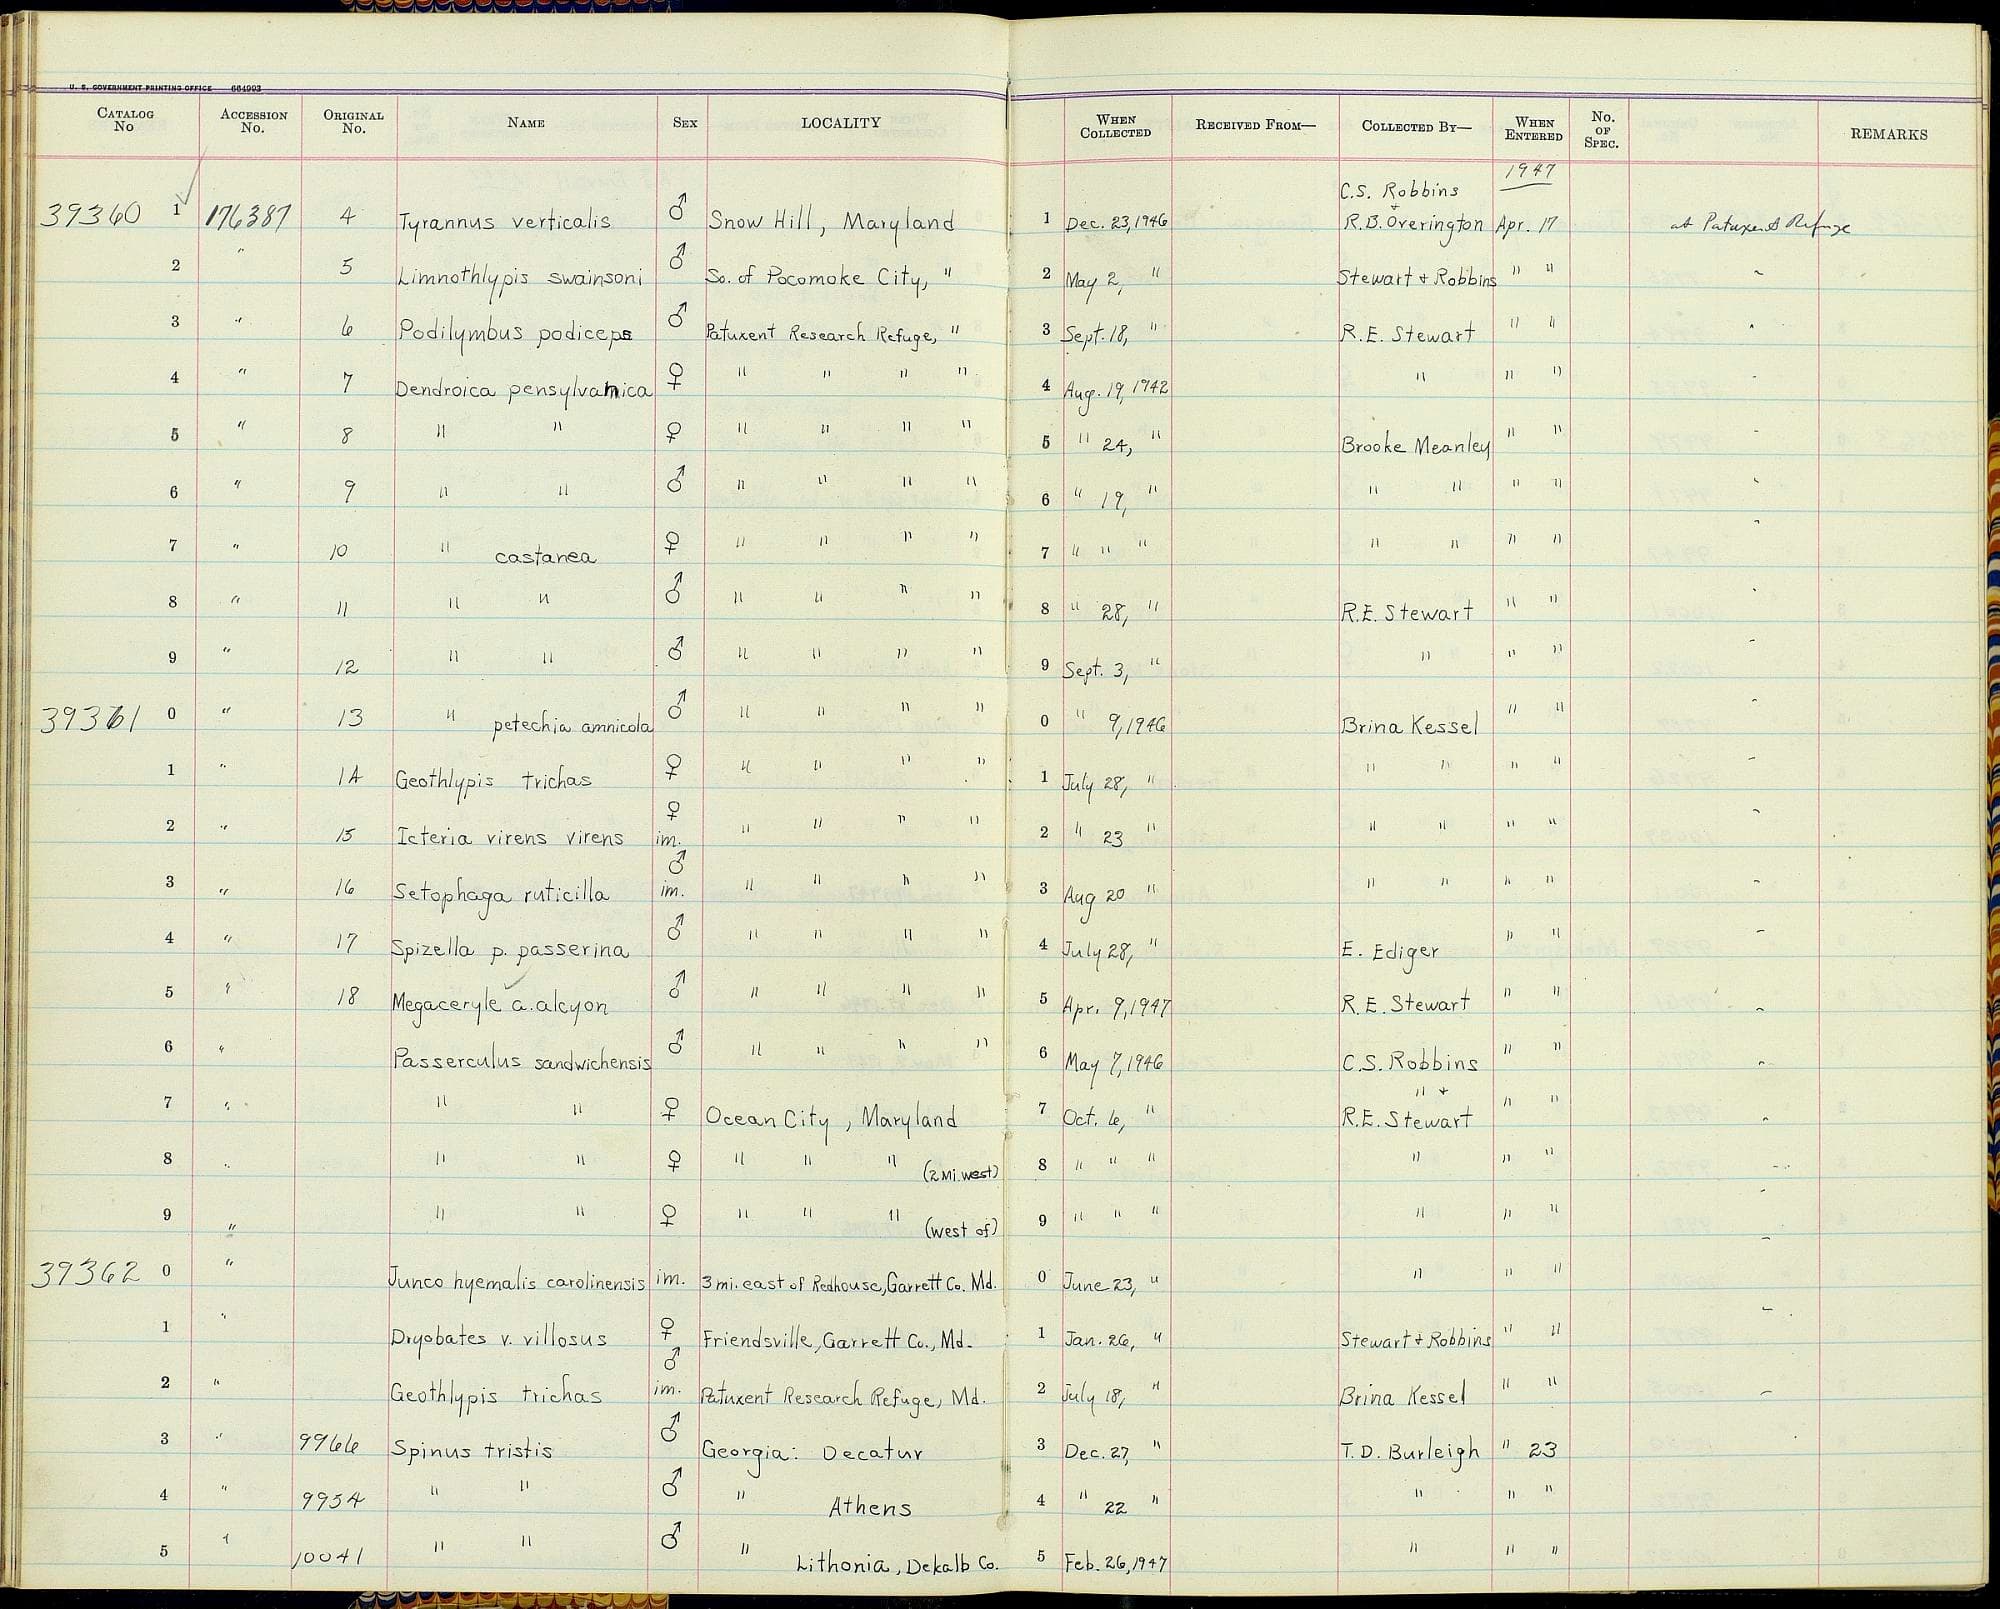 U. S. GOVERNMENT PRINTING OFFICE 664993
CATALOG No ACCESSION No. ORIGINAL No. NAME SEX LOCALITY WHEN COLLECTED RECEIVED FROM— COLLECTED BY— WHEN ENTERED No. OF SPEC. REMARKS
1947
C.S. Robbins +
39360 1 176387 4 Tyrannus verticalis ♂ Snow Hill, Maryland 1 Dec. 23, 1946 R.B. Overington Apr. 17 at Patuxent Refuge
2 " 5 Limnothlypis swainsoni ♂ So. of Pocomoke City, " 2 May 2, " Stewart + Robbins " "
3 " 6 Podilymbus podiceps ♂ Patuxent Research Refuge, " 3 Sept. 18, " R.E. Stewart " "
4 " 7 Dendroica pensylvanica ♀ " " " " 4 Aug. 19, 1942 " " " "
5 " 8 " " ♀ " " " " 5 " 24, " Brooke Meanley " "
6 " 9 " " ♂ " " " " 6 " 19, " " " " "
7 " 10 " castanea ♀ " " " " 7 " " " " " " "
8 " 11 " " ♂ " " " " 8 " 28, " R.E. Stewart " "
9 " 12 " " ♂ " " " " 9 Sept. 3, " " " "
39361 0 " 13 " petechia amnicola ♂ " " " " 0 " 9, 1946 Brina Kessel " "
1 " 14 Geothlypis trichas ♀ " " " " 1 July 28, " " " " "
2 " 15 Icteria virens virens ♀ im. " " " " 2 " 23 " " " " "
3 " 16 Setophaga ruticilla ♂ im. " " " " 3 Aug 20 " " " " "
4 " 17 Spizella p. passerina ♂ " " " " 4 July 28, " E. Ediger " "
5 " 18 Megaceryle a. alcyon ♂ " " " " 5 Apr. 9, 1947 R.E. Stewart " "
6 " Passerculus sandwichensis ♂ " " " " 6 May 7, 1946 C.S. Robbins " "
7 " " " ♀ Ocean City, Maryland 7 Oct. 6, " " + R.E. Stewart " "
8 " " " ♀ " " " (2 mi. west) 8 " " " " " "
9 " " " ♀ " " " (west of) 9 " " " " " "
39362 0 " Junco hyemalis carolinensis im. 3 mi. east of Redhouse, Garrett Co. Md. 0 June 23, " " " "
1 " Dryobates v. villosus ♀ Friendsville, Garrett Co., Md. 1 Jan. 26, " Stewart + Robbins " "
2 " Geothlypis trichas ♂ im. Patuxent Research Refuge, Md. 2 July 18, " Brina Kessel " "
3 " 9966 Spinus tristis ♂ Georgia: Decatur 3 Dec. 27, " T.D. Burleigh " 23
4 " 9954 " " ♂ " Athens 4 " 22 " " " "
5 " 10041 " " ♂ " Lithonia, Dekalb Co. 5 Feb. 26, 1947 " " "